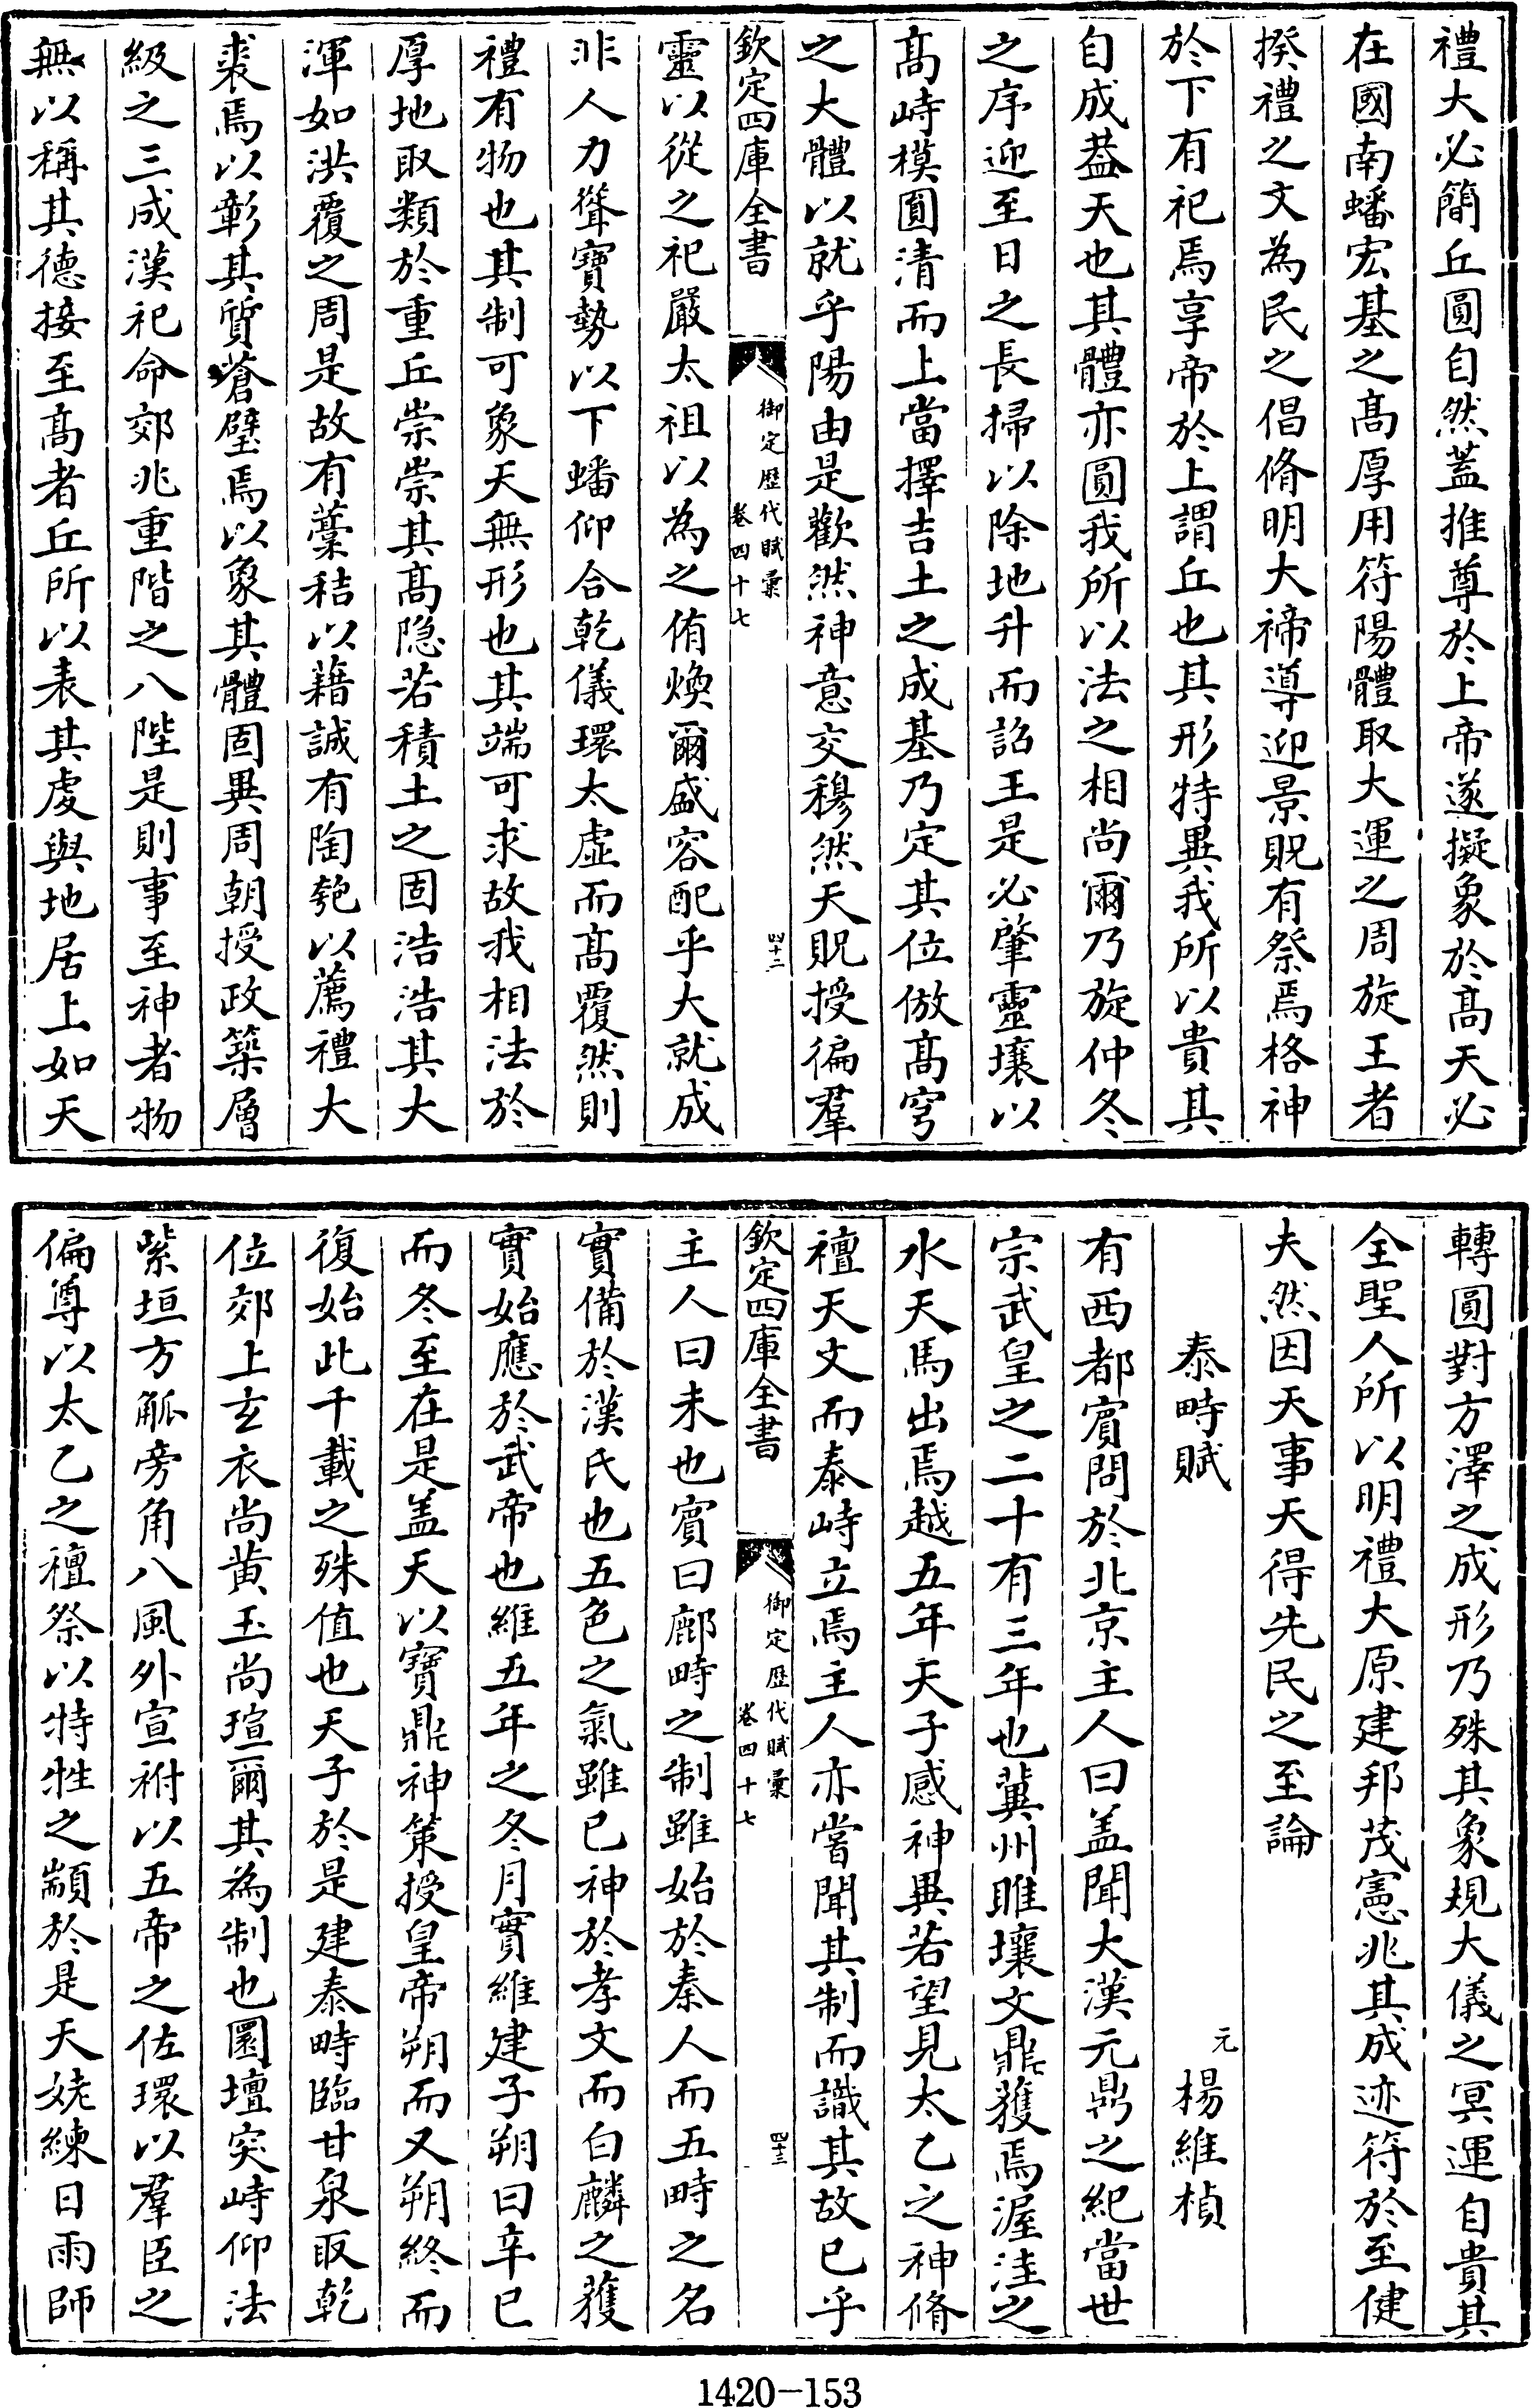 禮大必簡丘圓自然蓋推尊於上帝遂擬象於髙天必
在國南蟠宏基之髙厚用符陽體取大運之周旋王者
揆禮之文為民之倡脩明大禘導迎景貺有祭焉格神
於下有祀焉享帝於上謂丘也其形特異我所以貴其
自成葢天也其體亦圓我所以法之相尚爾乃旋仲冬
之序迎至日之長掃以除地升而詔王是必肇靈壤以
髙峙模圓清而上當擇吉土之成基乃定其位倣髙穹
之大體以就乎陽由是歡然神意交穆然天貺授徧羣
欽定四庫全書
御定歴代賦彙
卷四十七
四十二
靈以從之祀嚴太祖以為之侑煥爾盛容配乎大就成
非人力聳寶勢以下蟠仰合乾儀環太虚而髙覆然則
禮有物也其制可象天無形也其端可求故我相法於
厚地取類於重丘崇崇其髙隠若積土之固浩浩其大
渾如洪覆之周是故有藁秸以藉誠有陶匏以薦禮大
裘焉以彰其質蒼璧焉以象其體固異周朝授政築層
級之三成漢祀命郊兆重階之八陛是則事至神者物
無以稱其德接至髙者丘所以表其䖍與地居上如天
轉圓對方澤之成形乃殊其象規大儀之冥運自貴其
全聖人所以明禮大原建邦茂憲兆其成迹符於至健
夫然因天事天得先民之至論
泰畤賦
元
楊維楨
有西都賔問於北京主人曰盖聞大漢元鼎之紀當世
宗武皇之二十有三年也冀州睢壤文鼎獲焉渥洼之
水天馬出焉越五年天子感神異若望見太乙之神脩
襢天文而泰峙立焉主人亦嘗聞其制而識其故已乎
欽定四庫全書
御定歴代賦彙
卷四十七
四十三
主人曰未也賔曰鄜畤之制雖始於秦人而五畤之名
實備於漢氏也五色之氣雖已神於孝文而白麟之獲
實始應於武帝也維五年之冬月實維建子朔曰辛巳
而冬至在是盖天以寶鼎神策授皇帝朔而又朔終而
復始此千載之殊值也天子於是建泰畤臨甘泉取乾
位郊上玄衣尚黄玉尚瑄爾其為制也圜壇突峙仰法
紫垣方觚旁角八風外宣祔以五帝之佐環以羣臣之
偏尊以太乙之襢祭以特牲之顓於是天姥練日雨師
1420-153